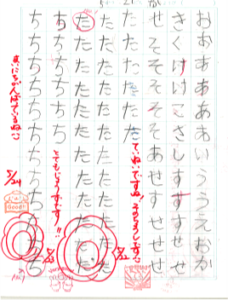 おおあああいううえおか
きくけけこさしすすせせ
せそそそそそあせすせせ
たたたたたた
ていねいですね!
たたたたたたたたたたたた
たたたたたたたたたたたた
ちちちちちち
とてもじょうずです!!
ちちちちちちちちちちちち
まいにちがんばっているね
5/24